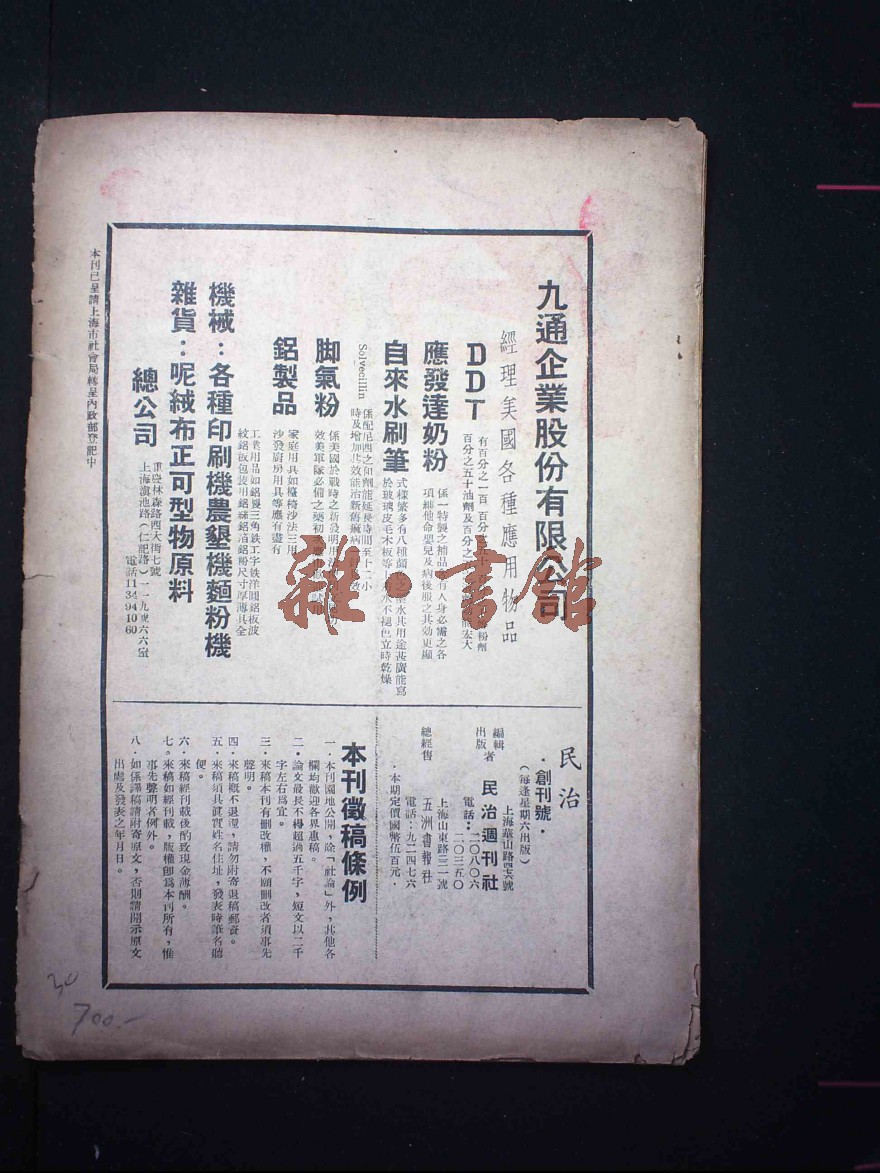 九通企業股份有限公司
經理美國各種應用物品
DDT
有百分之一百
百分之五十油劑及百分之
宏大
應發達奶粉
係一特製之補品
有人身必需之各
項維他命嬰兒及病後服之其功更顯
自來水刷筆
式樣繁多有八種顏
水其用途甚廣能寫
於玻璃皮毛木板等
水不褪色立時乾燥
Solvecillin
係配尼西之仰劑能延長時間至十二小
時及增加其效能治新舊
脚氣粉
係美國於戰時之新發明用
效美軍隊必備之藥初
鋁製品
家庭用具如檯椅沙法三用
沙發廚房用具等應有盡有
工業用品如鋁錠三角鉄工字鉄洋圓鋁板波
紋鋁板包裝用鋁絲鋁箔鋁粉尺寸厚薄具全
機械：各種印刷機農墾機麵粉機
雜貨：呢絨布正可型物原料
總公司
重慶林森路四大街七號
上海滇池路（仁記路）一一九號六六室
電話1134 94 10 60
本刊已呈請上海市社會局轉呈內政部登記中
民治
·創刊號·
（每逢星期六出版）
編輯
出版者
民治週刊社
上海華山路
號
電話：二〇八〇六
二〇三五〇
總經售
五洲書報社
上海山東路二二一號
電話：九二四七六
·本期定價國幣伍百元·
本刊徵稿條例
一·本刊園地公開，除「社論」外，其他各
欄均歡迎各界惠稿。
二·論文最長不得超過五千字，短文以二千
字左右爲宜。
三·來稿本刊有刪改權，不願刪改者須事先
聲明。
四·來稿概不退還，請勿附寄退稿郵資。
五·來稿須具眞實姓名住址，發表時筆名聽
便。
六·來稿經刊載後酌致現金薄酬。
七·來稿如經刊載，版權卽爲本刊所有，惟
事先聲明者例外。
八·如係譯稿請附寄原文，否則請開示原文
出處及發表之年月日。
雜·書館
30
700.-